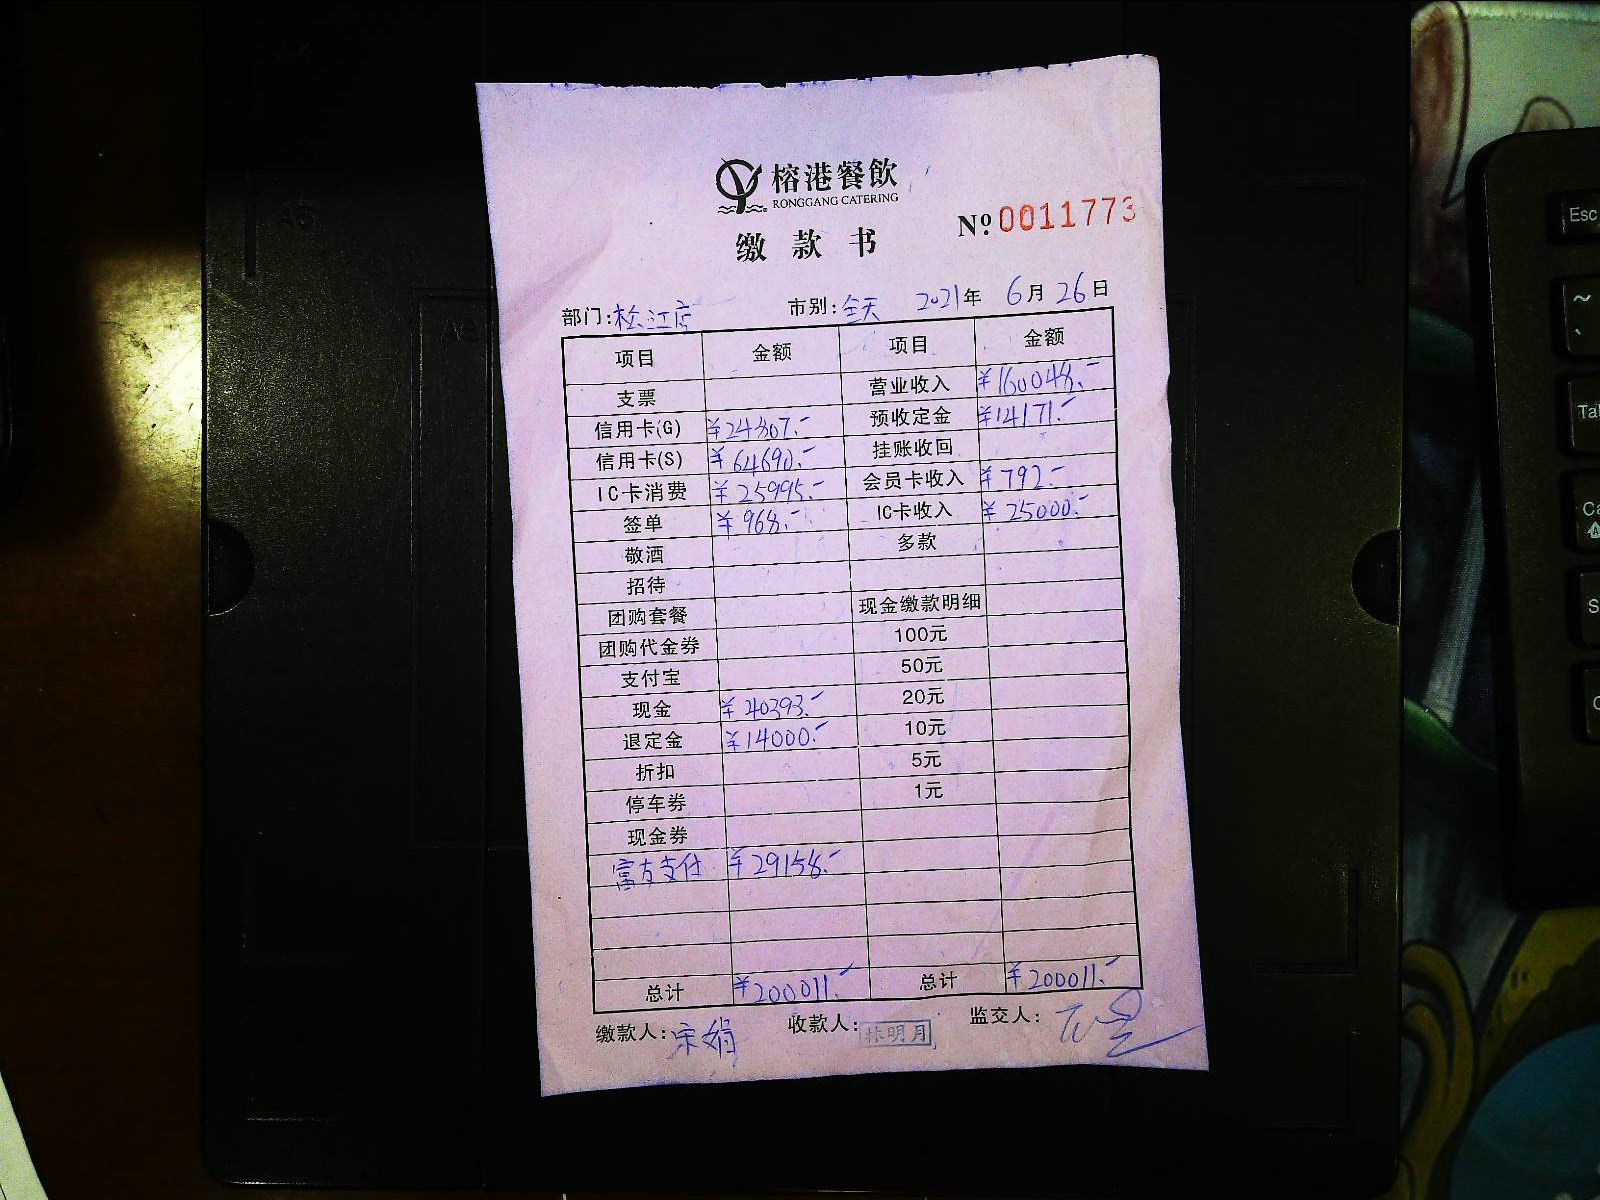 榕港餐飲
RONGGANG CATERING
缴款书
№ 0011773
部门:松江店 市别:全天 2021年 6月26日
项目 金额 项目 金额
支票 营业收入 ¥160048.-
信用卡(G) ¥24807.- 预收定金 ¥14171.-
信用卡(S) ¥64690.- 挂账收回
IC卡消费 ¥25995.- 会员卡收入 ¥792.-
签单 ¥968.- IC卡收入 ¥25000.-
敬酒 多款
招待
团购套餐 现金缴款明细
团购代金券 100元
支付宝 50元
现金 ¥40393.- 20元
退定金 ¥14000.- 10元
折扣 5元
停车券 1元
现金券
富友支付 ¥29158.-
总计 ¥200011.- 总计 ¥200011.-
缴款人:宋娟 收款人:林明月 监交人:
Esc
~